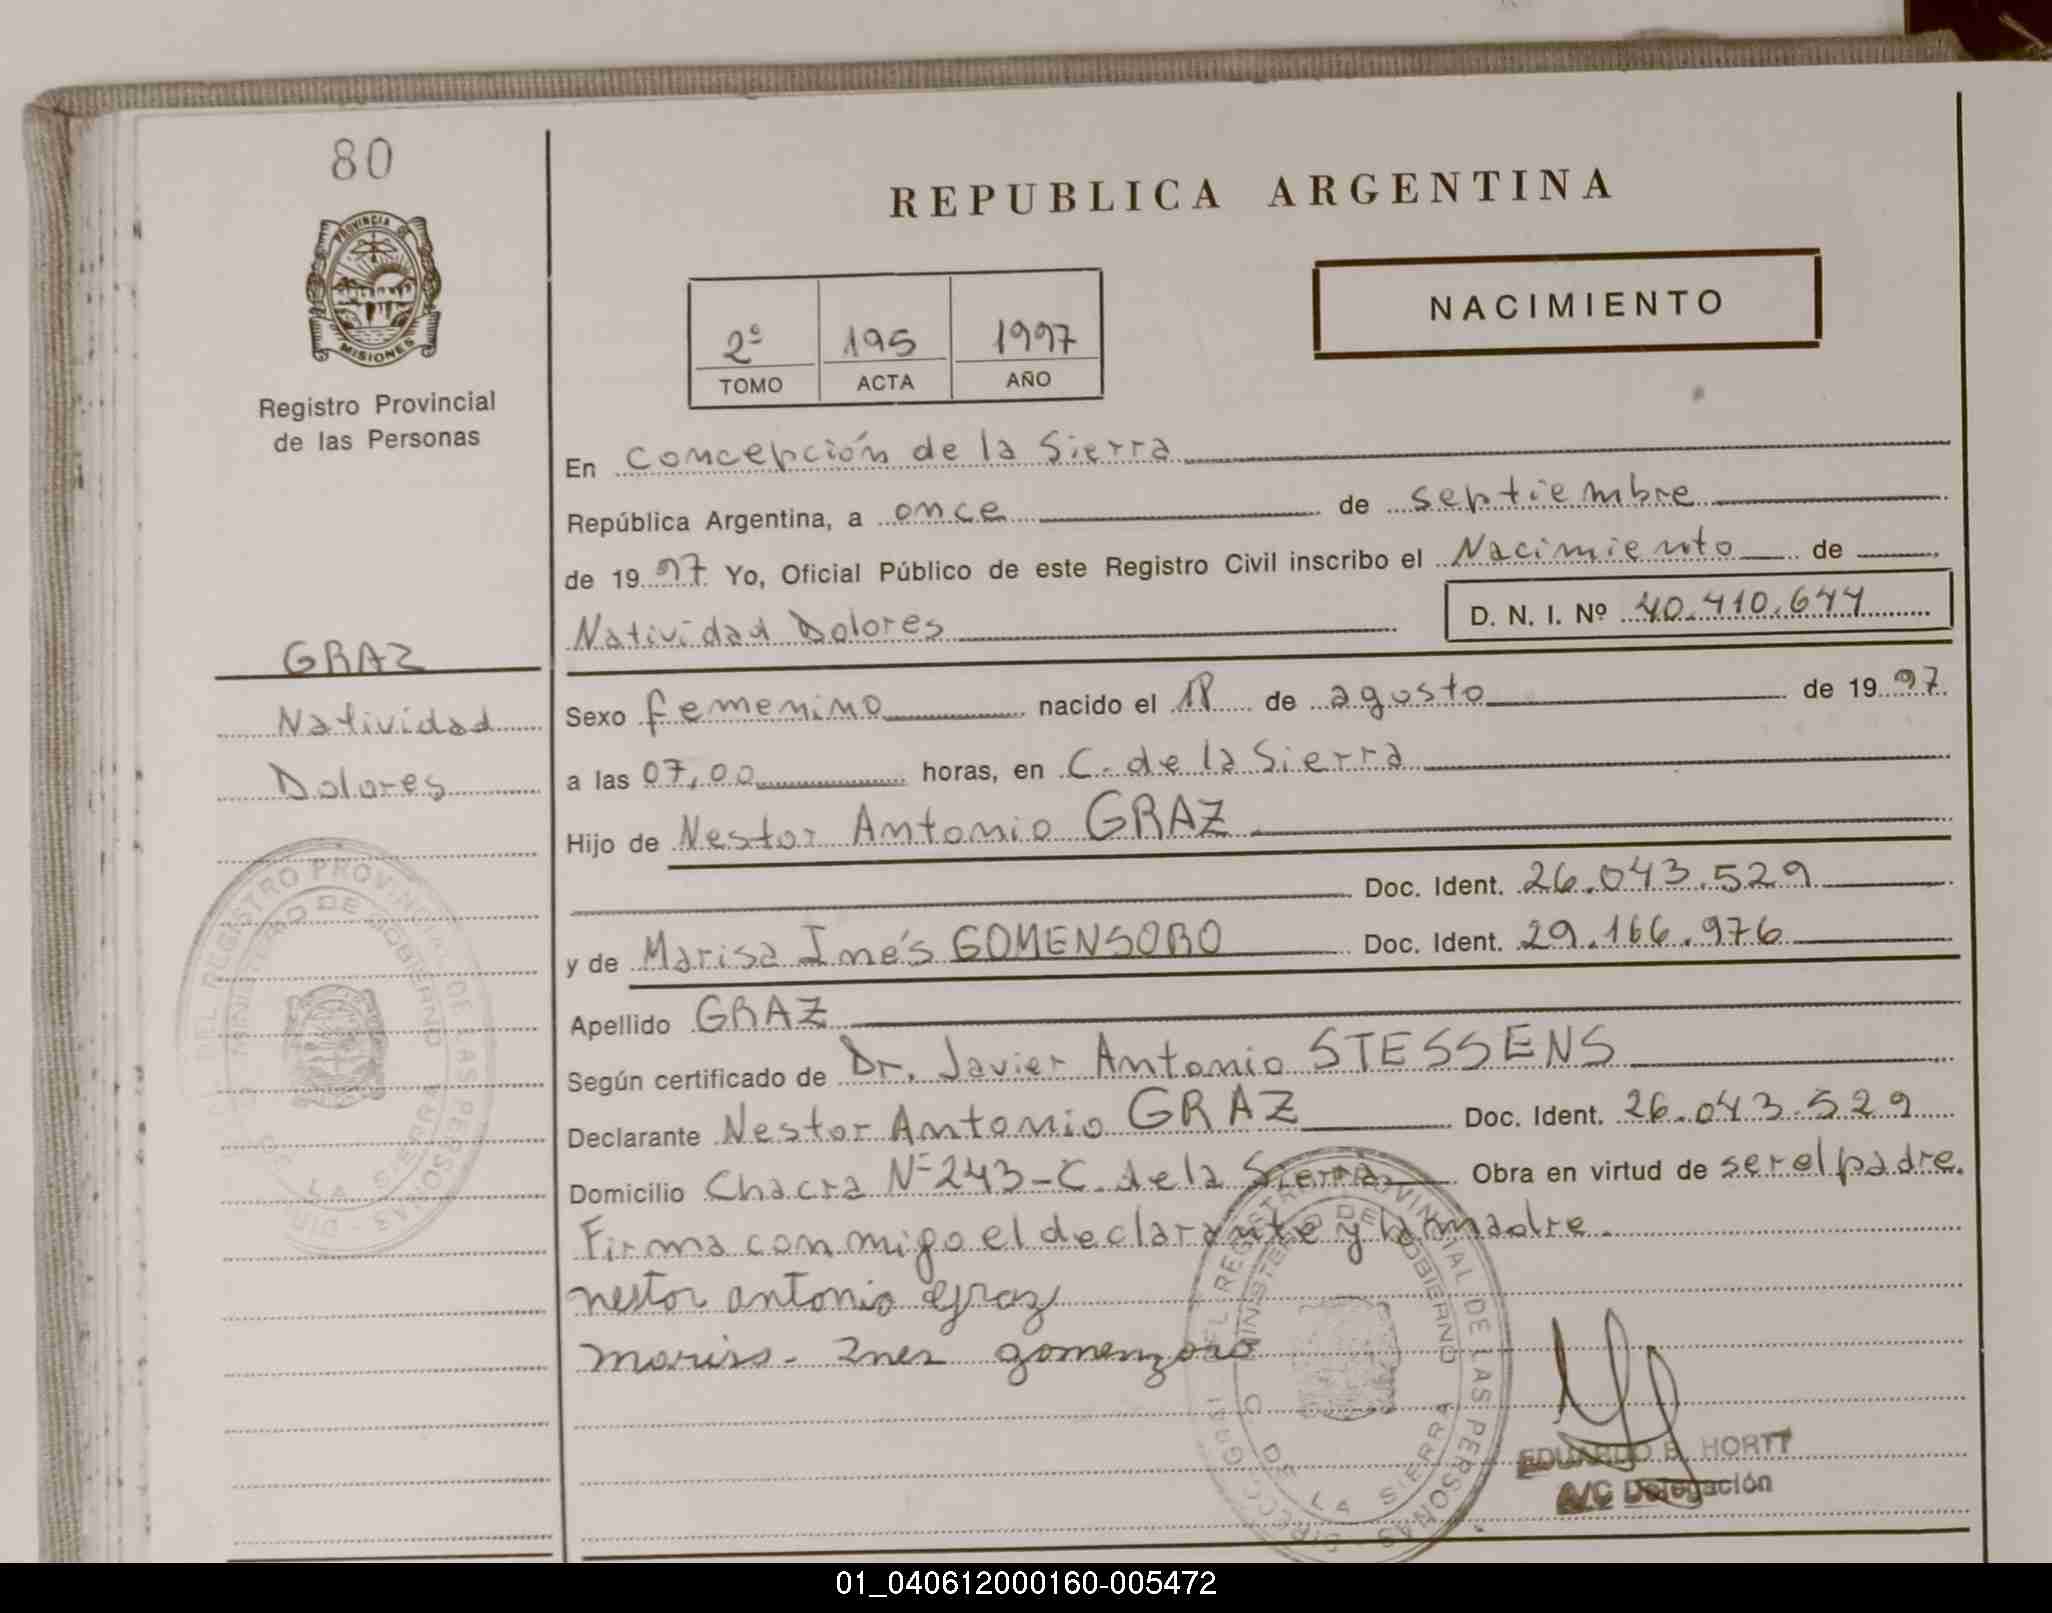 80
REPUBLICA ARGENTINA
PROVINCIA DE
MISIONES
NACIMIENTO
2º 195 1997
TOMO ACTA AÑO
Registro Provincial
de las Personas
En Concepción de la Sierra
República Argentina, a once de septiembre
de 1997 Yo, Oficial Público de este Registro Civil inscribo el Nacimiento de
Natividad Dolores D. N. I. Nº 40.410.644
GRAZ
Natividad
Dolores
Sexo femenino nacido el 18 de agosto de 1997
a las 07,00 horas, en C. de la Sierra
Hijo de Nestor Antonio GRAZ
Doc. Ident. 26.043.529
y de Marisa Inés GOMENSORO Doc. Ident. 29.166.976
Apellido GRAZ
Según certificado de Dr. Javier Antonio STESSENS
Declarante Nestor Antonio GRAZ Doc. Ident. 26.043.529
Domicilio Chacra Nº 243 - C. de la Sierra Obra en virtud de ser el padre.
Firma conmigo el declarante y la madre.
nestor antonio graz
marisa - Ines gomenzoro
EDUARDO E. HORTT
A/C Delegación
DEL REGISTRO PROVINCIAL DE LAS PERSONAS
MINISTERIO DE GOBIERNO
C. DE LA SIERRA
DEL REGISTRO PROVINCIAL DE LAS PERSONAS
MINISTERIO DE GOBIERNO
C. DE LA SIERRA
01_040612000160-005472